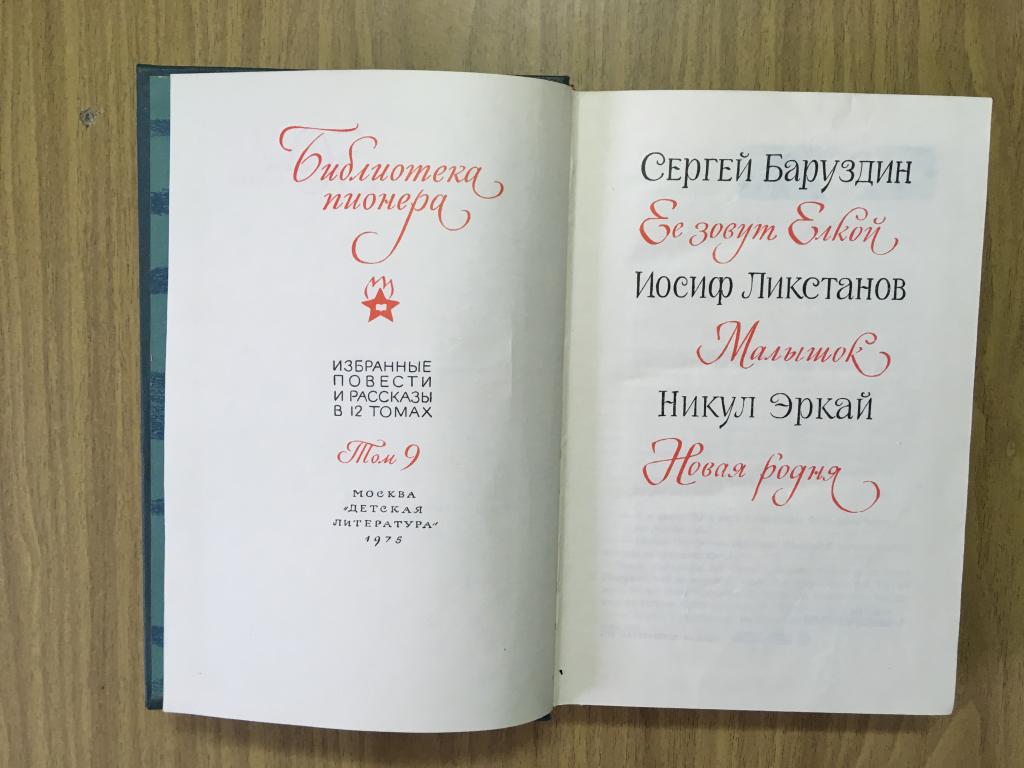 Библиотека
пионера
ИЗБРАННЫЕ
ПОВЕСТИ
И РАССКАЗЫ
В 12 ТОМАХ
Том 9
МОСКВА
„ДЕТСКАЯ
ЛИТЕРАТУРА“
1975
СЕРГЕЙ БАРУЗДИН
Ее зовут Елкой
ИОСИФ ЛИКСТАНОВ
Малышок
НИКУЛ ЭРКАЙ
Новая родня